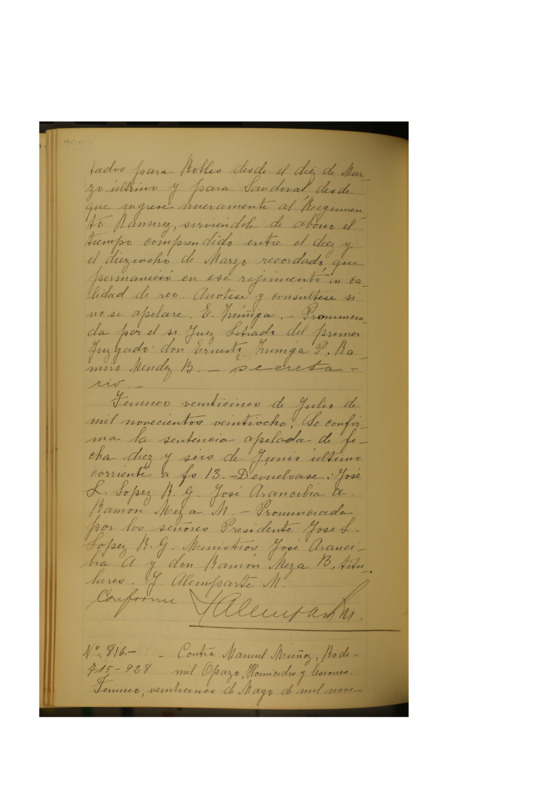 tados para Robles desde el diez de Mar
zo último y para Sandoval desde
que ingrese nuevamente al Regimien
to Ramirez, sirviendole de abono el
tiempo comprendido entre el diez y
el dieziocho de Marzo recordado que
permaneció en ese regimiento en ca-
lidad de reo. Anótese y consultese si
no se apelare. E. Zúñiga. - Pronuncia-
da por el sr. Juez Letrado del primer
Juzgado don Ernesto Zuniga P. Ra-
miro Mendez B. - secreta-
rio. -
Temuco veinticinco de Julio de
mil novecientos veintiocho. Se confir-
ma la sentencia apelada de fe-
cha diez y seis de Junio último
corriente a fs 13. Devuelvase. José
L. Lopez R G. José Arancibia A.
Ramon Meza M. - Pronunciada
por los señores Presidente José L.
Lopez R. G. Ministros José Aranci-
bia A y don Ramón Meza B. titu
lares. Y Alemparte M.
Conforme
No. 816.- - Contra Manuel Muñoz, Rode-
mil Opazo, Homicidio y lesiones.
Temuco, veinticinco de Mayo de mil nove-